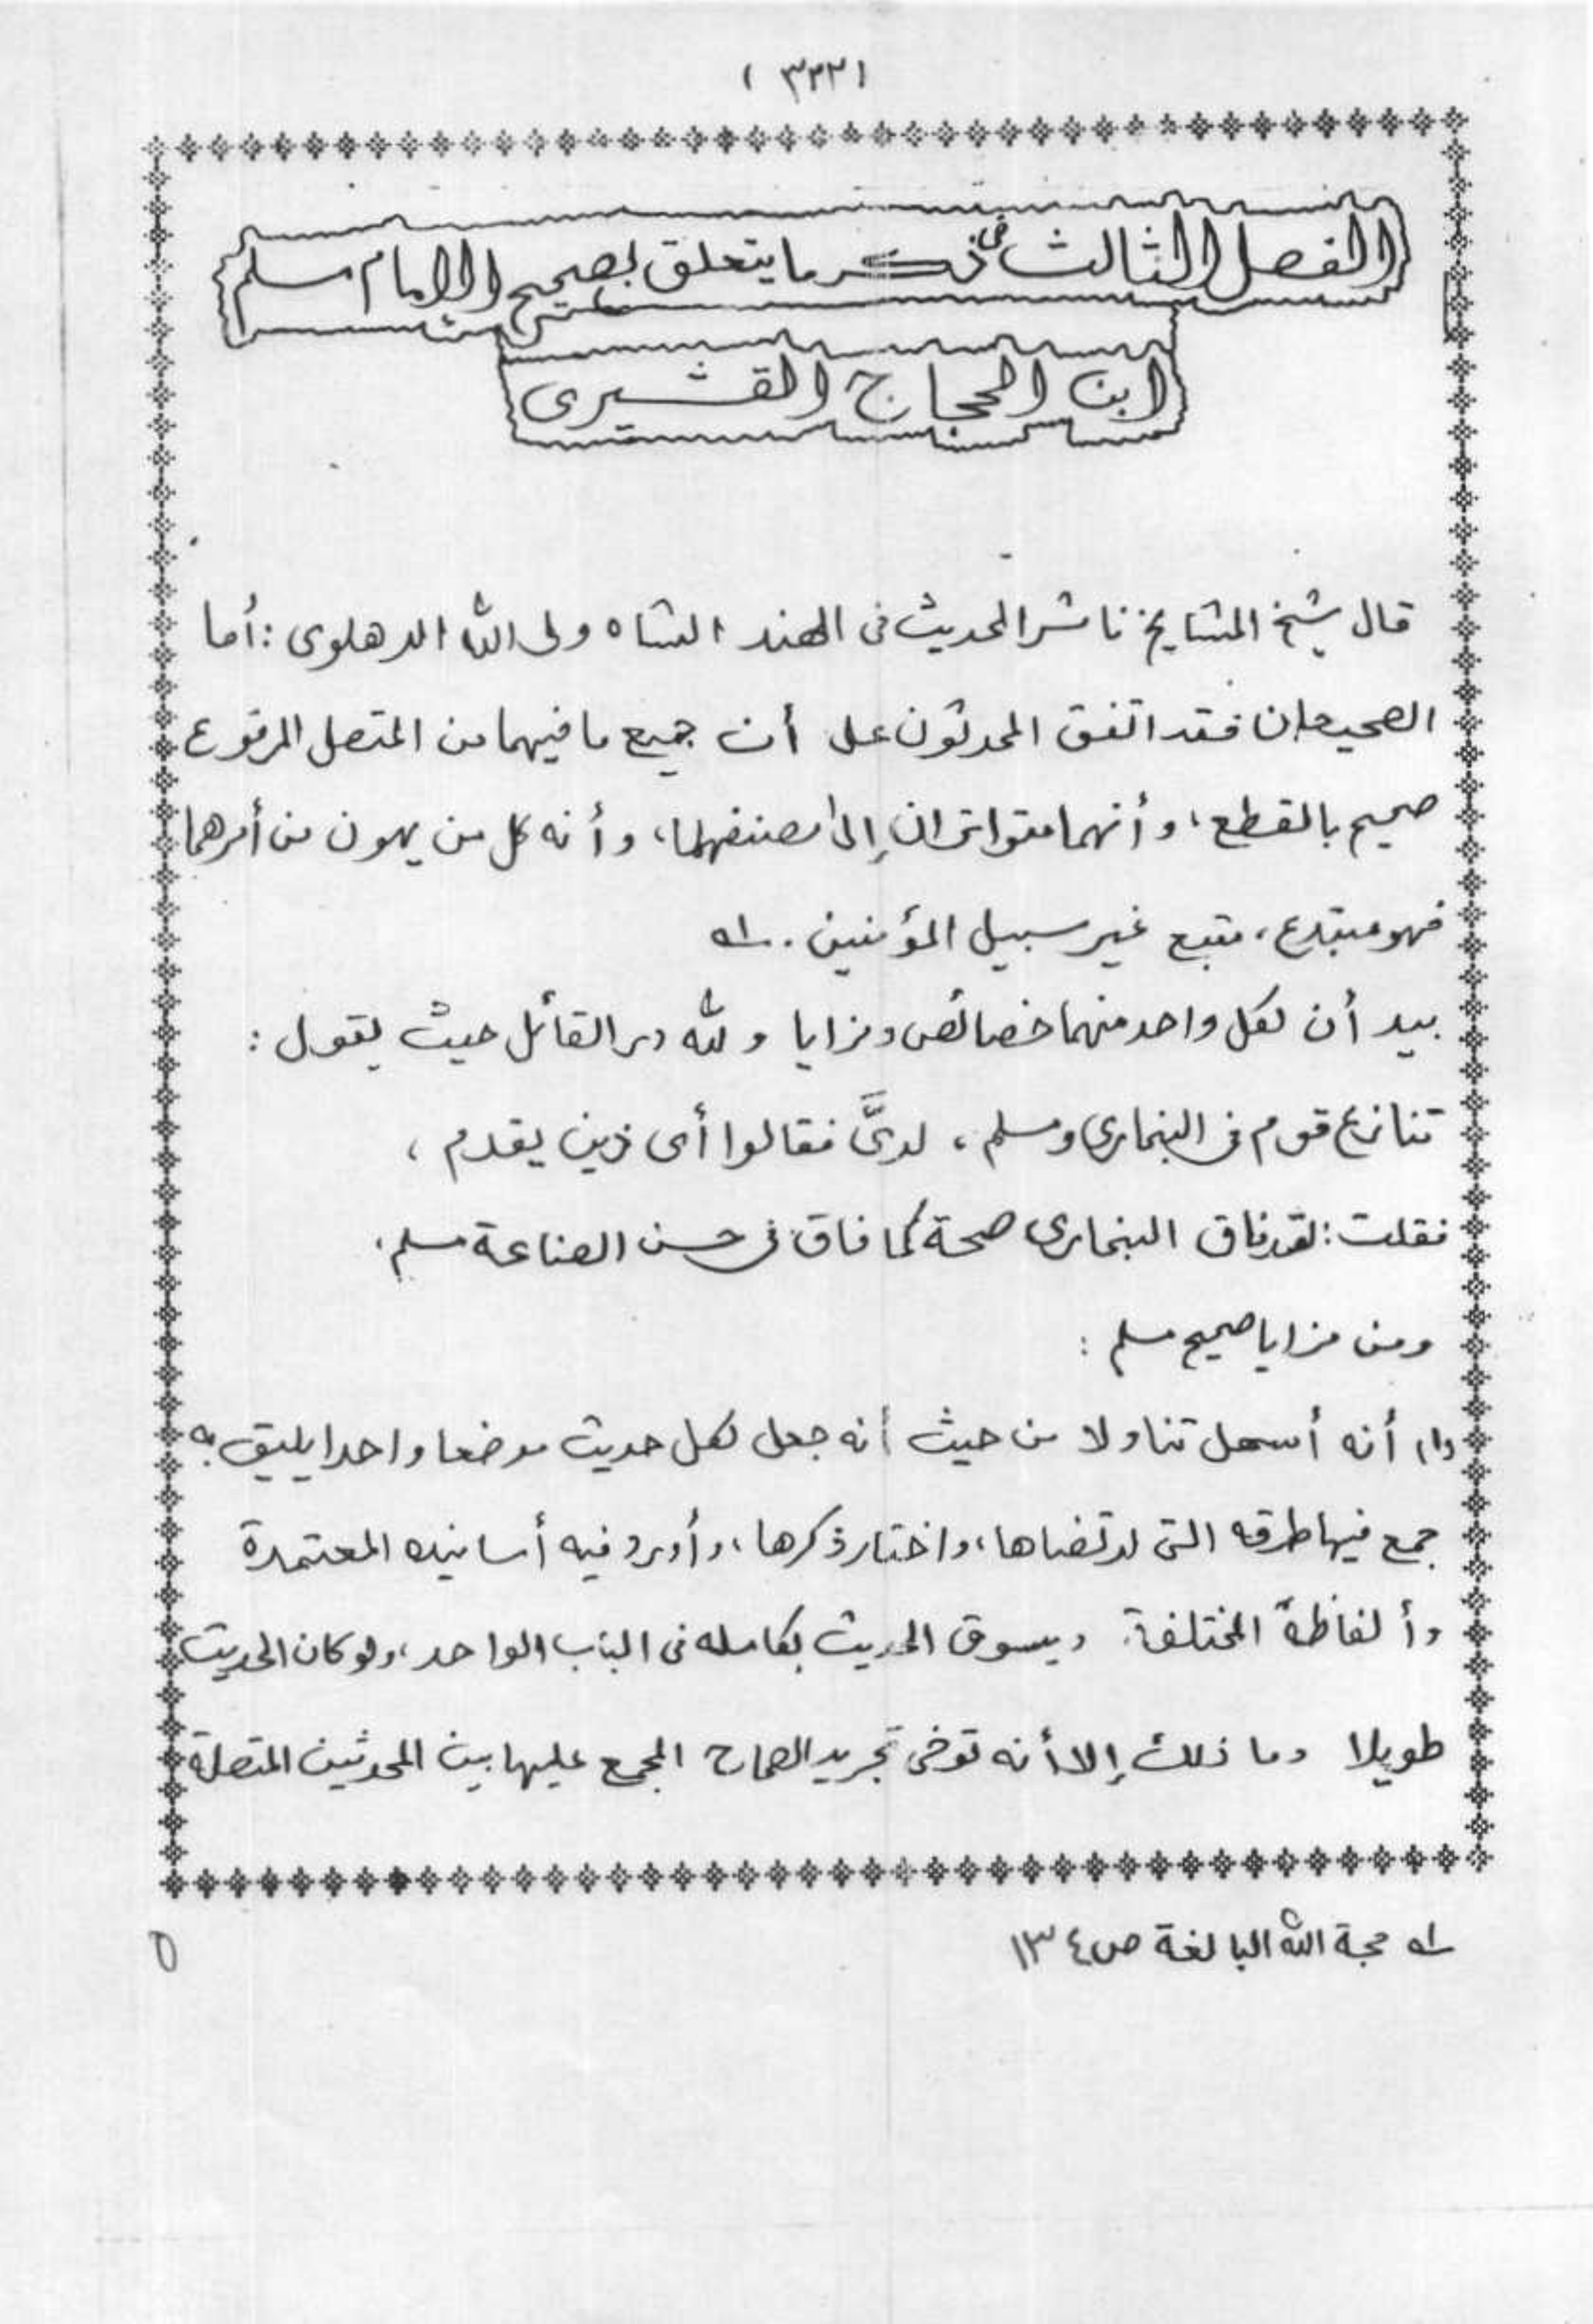 (٣٢٢)
الفصل الثالث في ذكر ما يتعلق بصحيح الإمام مسلم
ابن الحجاج القشيرى
قال شيخ المشايخ ناشر الحديث فى الهند الشاه ولى الله الدهلوى : أما
الصحيحان فقد اتفق المحدثون على أن جميع ما فيهما من المتصل المرفوع
صحيح بالقطع، و أنهما متواتران إلى مصنفهما، وأنه كل من يهون من أمرهما
فهو مبتدع، متبع غير سبيل المؤمنين . له
بيد أن لكل واحد منهما خصائص ومزايا و لله در القائل حيث يقول :
تنازع قوم فى البخارى ومسلم ، لدىَّ فقالوا أى ذين يقدم ،
فقلت : لقد فاق البخارى صحة كما فاق فى حسن الصناعة مسلم .
ومن مزايا صحيح مسلم :
(١) أنه أسهل تناولا من حيث أنه جعل لكل حديث موضعا واحدا يليق به
جمع فيها طرقه التى ارتضاها، واختار ذكرها، وأورد فيه أسانيده المعتمدة
وألفاظه المختلفة. ويسوق الحديث بكامله فى الباب الواحد، ولو كان الحديث
طويلا وما ذلك إلا أنه توخى تجريد الصحاح المجمع عليها بين المحدثين المتصلة
له حجة الله البالغة ص ١٣٤